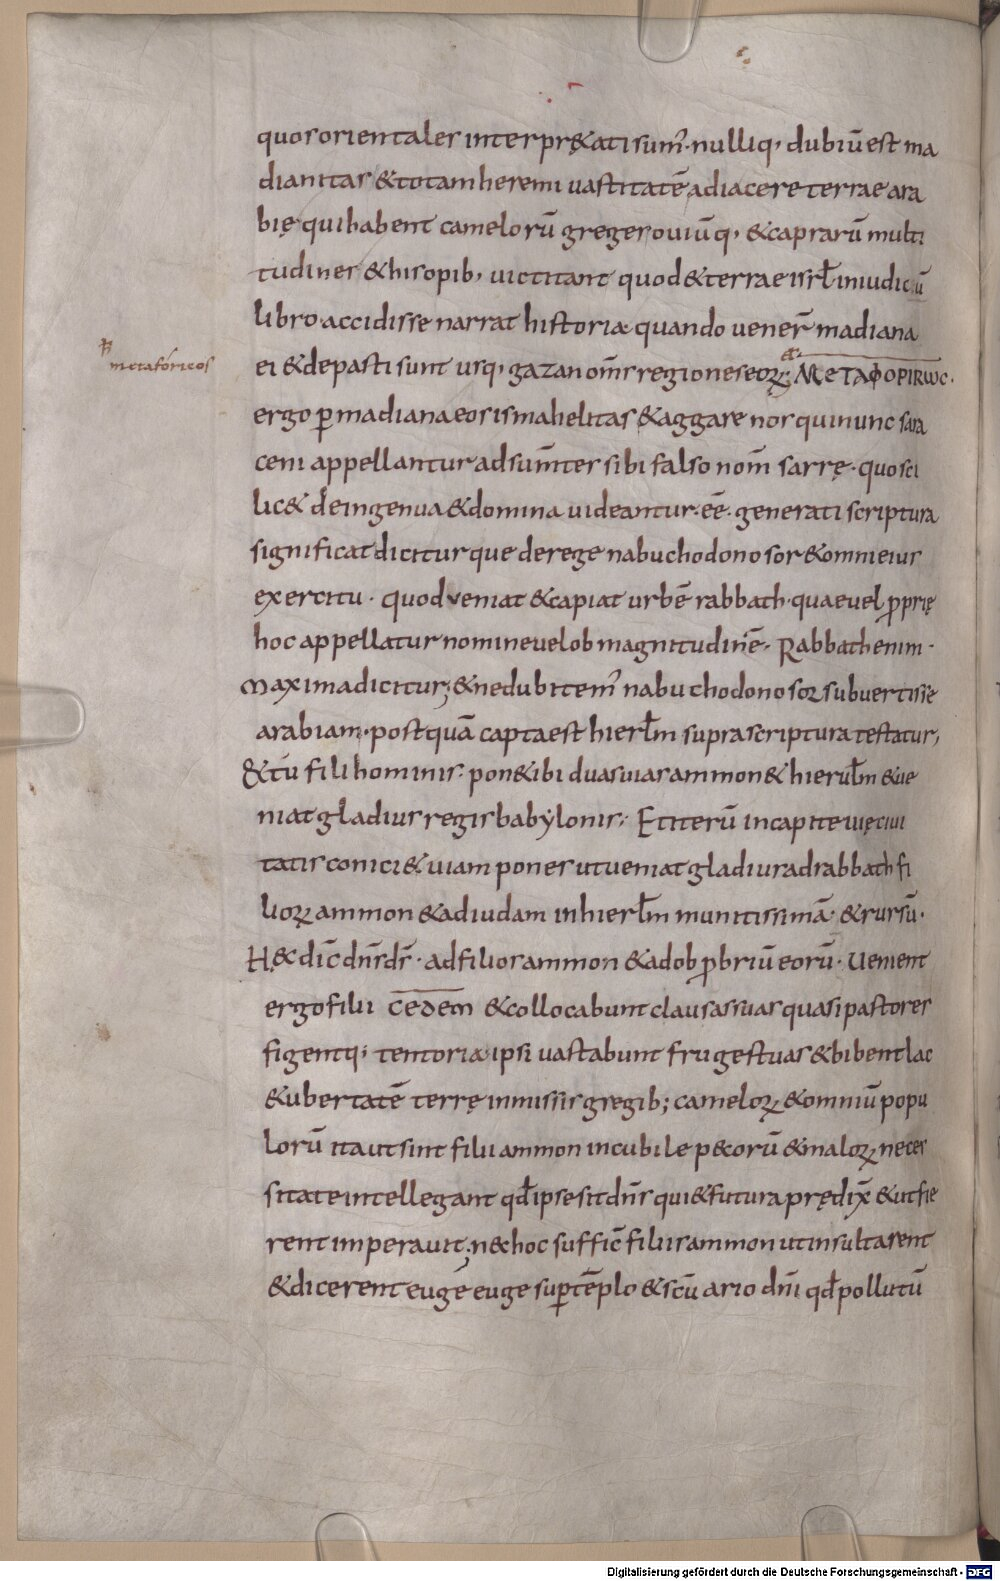 quos orientales interpr&ati sum̅· nulliq; dubiū est ma
dianitas & totam heremi uastitatē adiacere terrae ara
bię qui habent camelorū greges ouiūq; & caprarū multi
tudines & his opib; uictitant quod & terrae isrł in iudicū
libro accidisse narrat historia quando uener̅ madiana
ei & depasti sunt usq; gazan om̅s regiones eoꝝ; ΜΕΤΑΦΟΡΙΚωC·
metaforicos
ergo ꝑ madianaeos ismahelitas & aggarenos qui nunc sara
ceni appellantur adsum̅ter sibi falso nom̅ sarrę· quo sci
lic& de ingenua & domina uideantur· eē· generati scriptura
significat dicitur que de rege nabuchodonosor & omni eius
exercitu· quod veniat & capiat urbē rabbath· quae vel ꝓprię
hoc appellatur nomine vel ob magnitudinē· Rabbath enim·
Maxima dicitur; & ne dubitem̅ nabuchodonosoꝝ subvertisse
arabiam· postquā capta est hierłm supra scriptura testatur;
& tu fili hominis· pon& ibi duas uias ammon & hierułm & ue
niat gladius regis babylonis; Et iterū in capite uię ciui
tatis conici& uiam pones ut veniat gladius ad rabbath fi
lioꝝ ammon & ad iudam in hierłm munitissimā· & rursū·
Hęc dic̅ dn̅s ds̅· ad filios ammon & ad obprobriū eorū· Uenient
ergo filii cedem & collocabunt clausas suas quasi pastores
figentq; tentoria ipsi uastabunt fruges tuas & bibent lac
& ubertatē terrę inmissis gregib; cameloꝝ & omniū popu
lorū ita ut sint filii ammon in cubile pecorū & maloꝝ neces
sitate intellegant qd̅ ipse sit dn̅s qui & futura prędix̅ & ut fie
rent imperauit; nec hoc suffic̅ filiis ammon ut insultarent
& dicerent euge euge suꝑ tēplo & sc̅uario dn̅i qd̅ pollutū
Digitalisierung gefördert durch die Deutsche Forschungsgemeinschaft - DFG